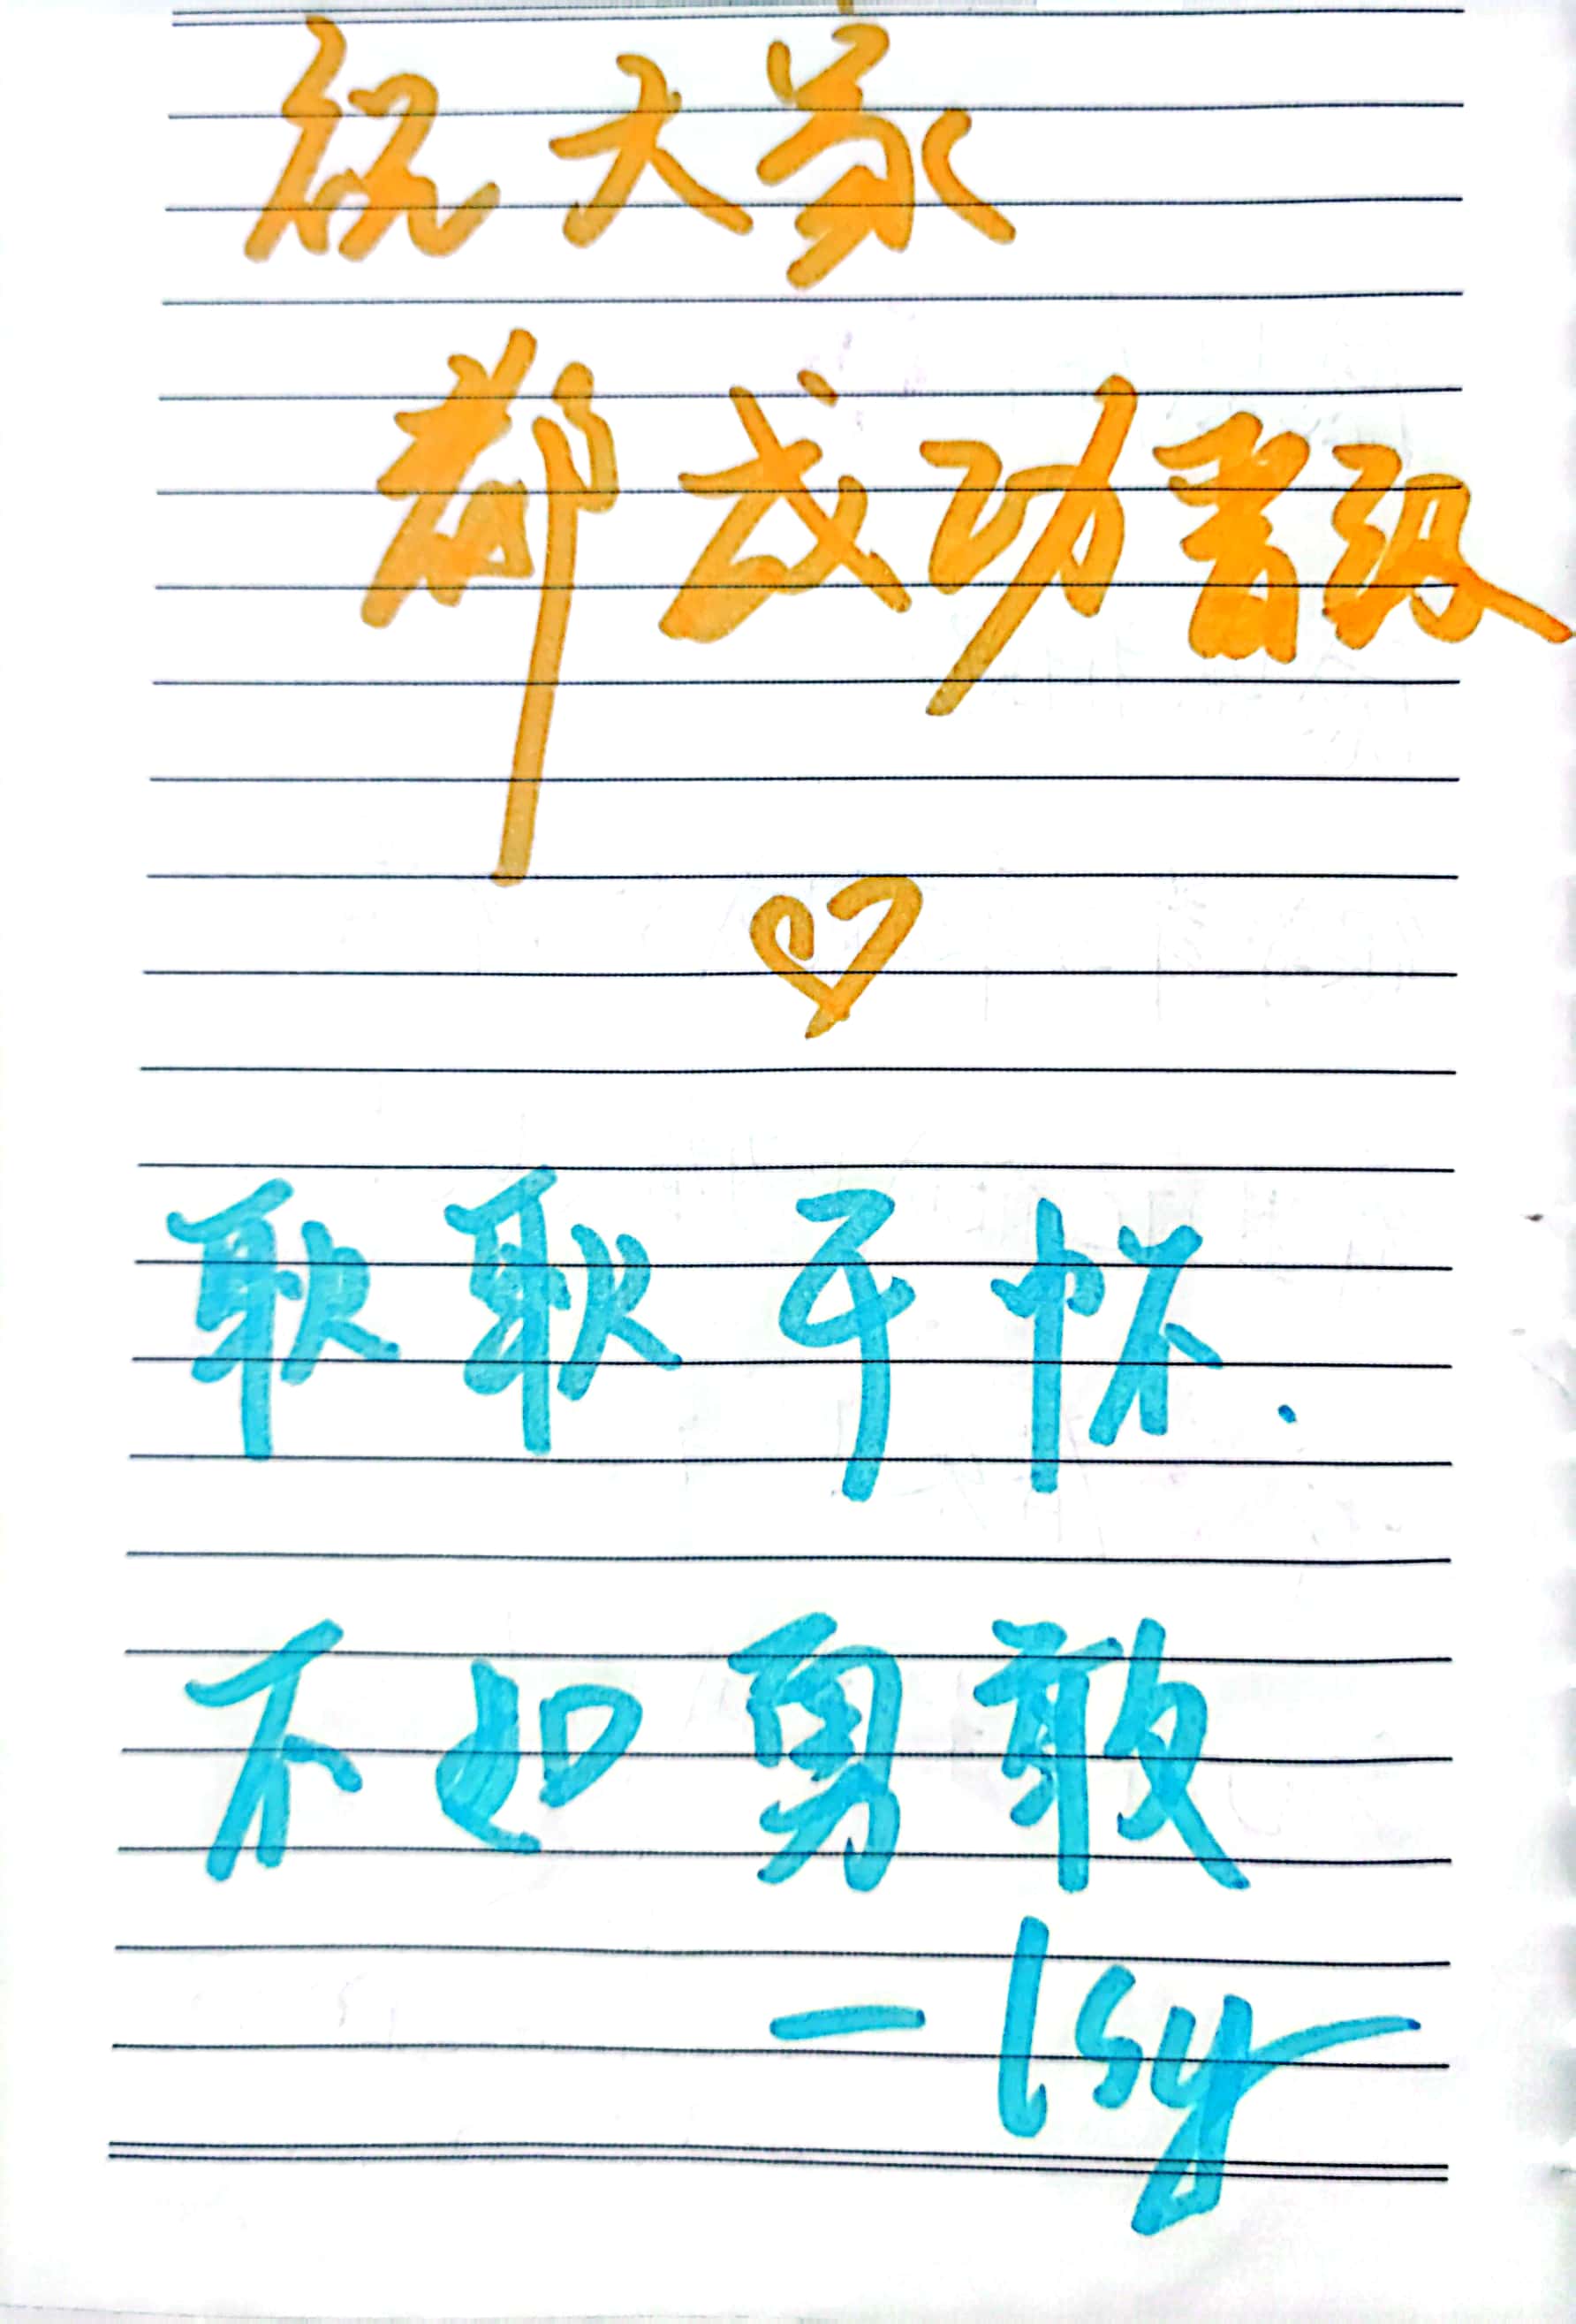 祝大家
都成功晋级
♡
耿耿于怀.
不如勇敢
— lsy